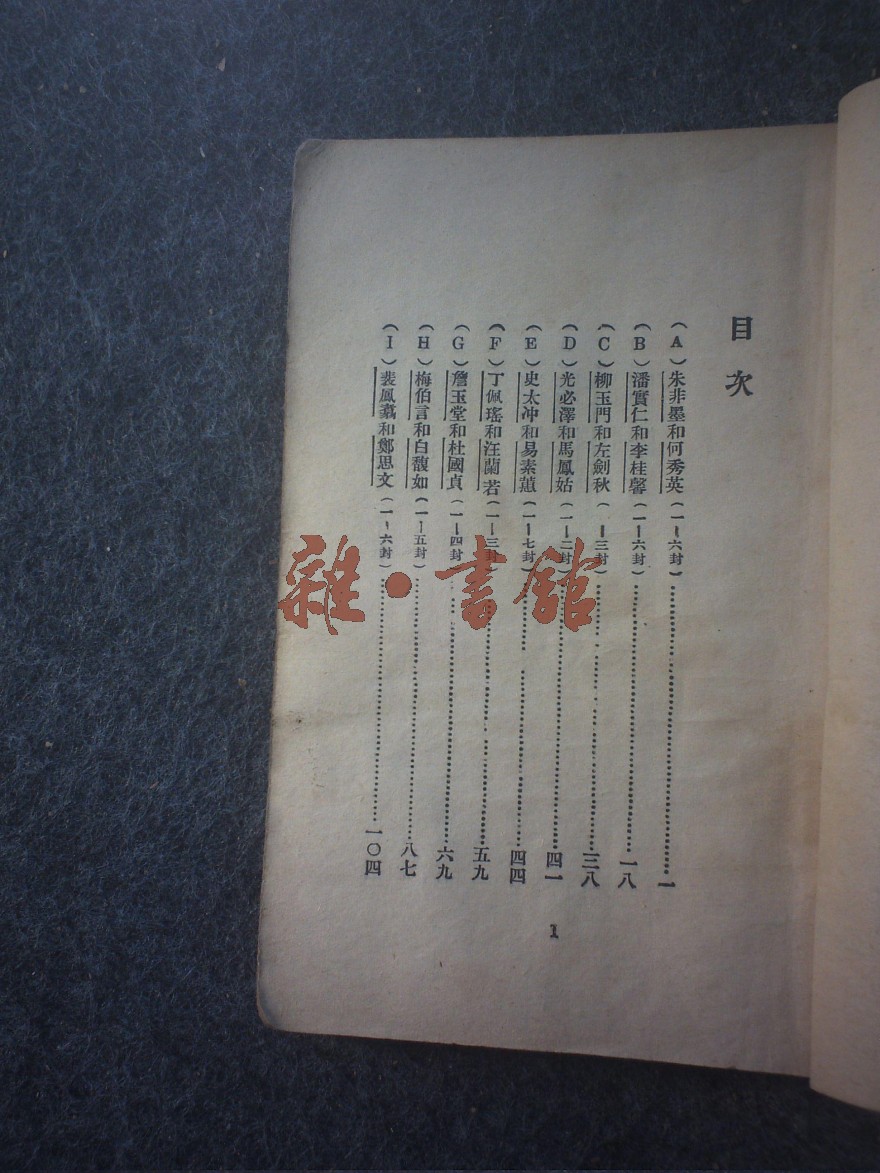 目次
（A）朱非墨和何秀英（一—六封）……一
（B）潘實仁和李桂馨（一—六封）……一八
（C）柳玉門和左劍秋（一—三封）……三八
（D）光必澤和馬鳳姑（一—二封）……四一
（E）史太冲和易素蕙（一—七封）……四四
（F）丁佩瑤和汪蘭若（一—三封）……五九
（G）詹玉堂和杜國貞（一—四封）……六九
（H）梅伯言和白馥如（一—五封）……八七
（I）裴鳳翥和鄭思文（一—六封）……一〇四
1
雜·書館